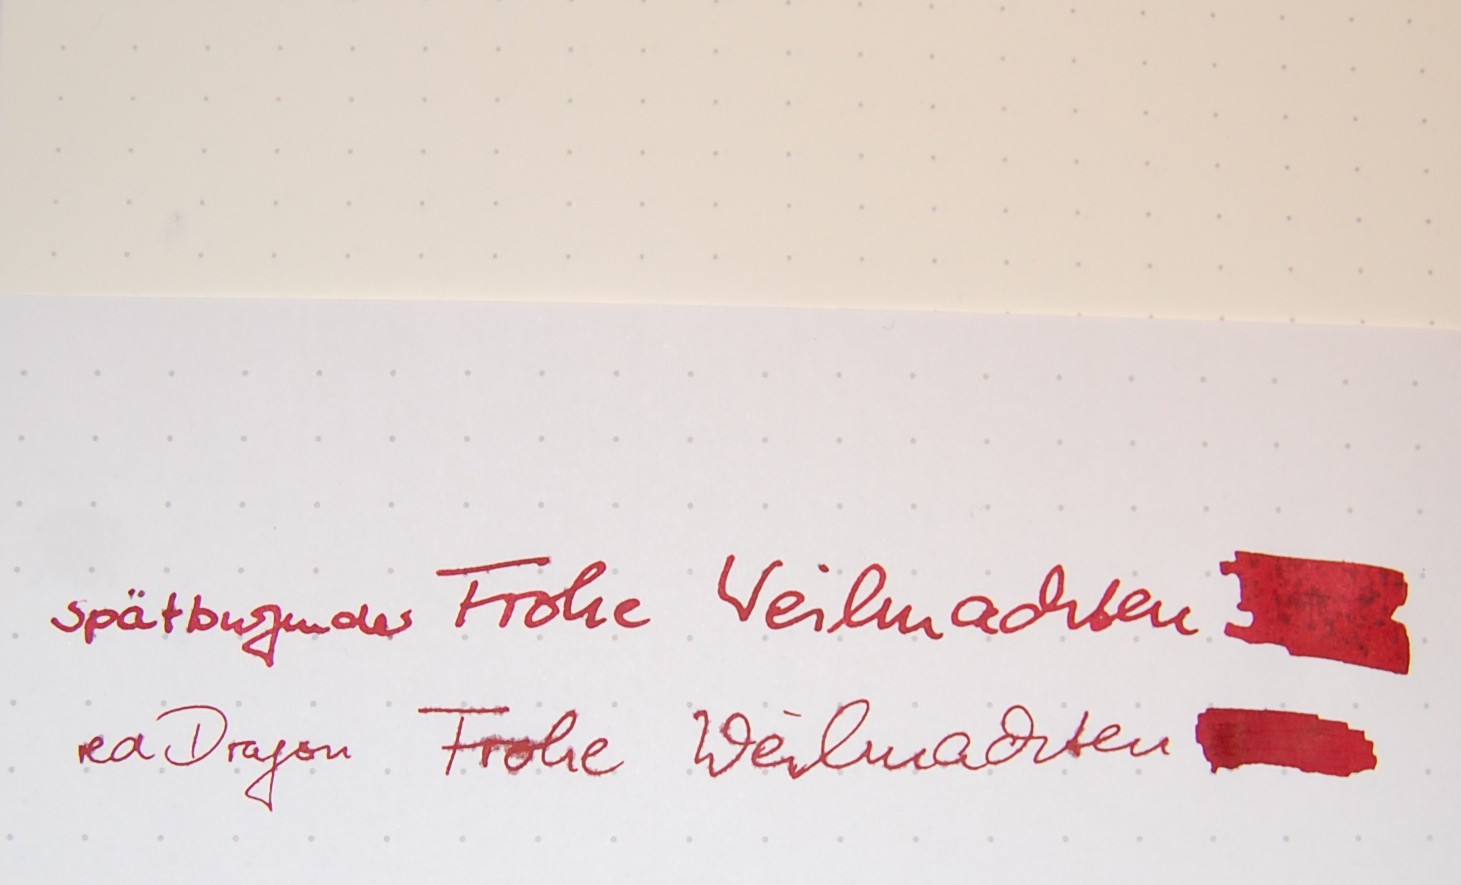 spätburgunder Frohe Weihnachten
red Dragon Frohe Weihnachten